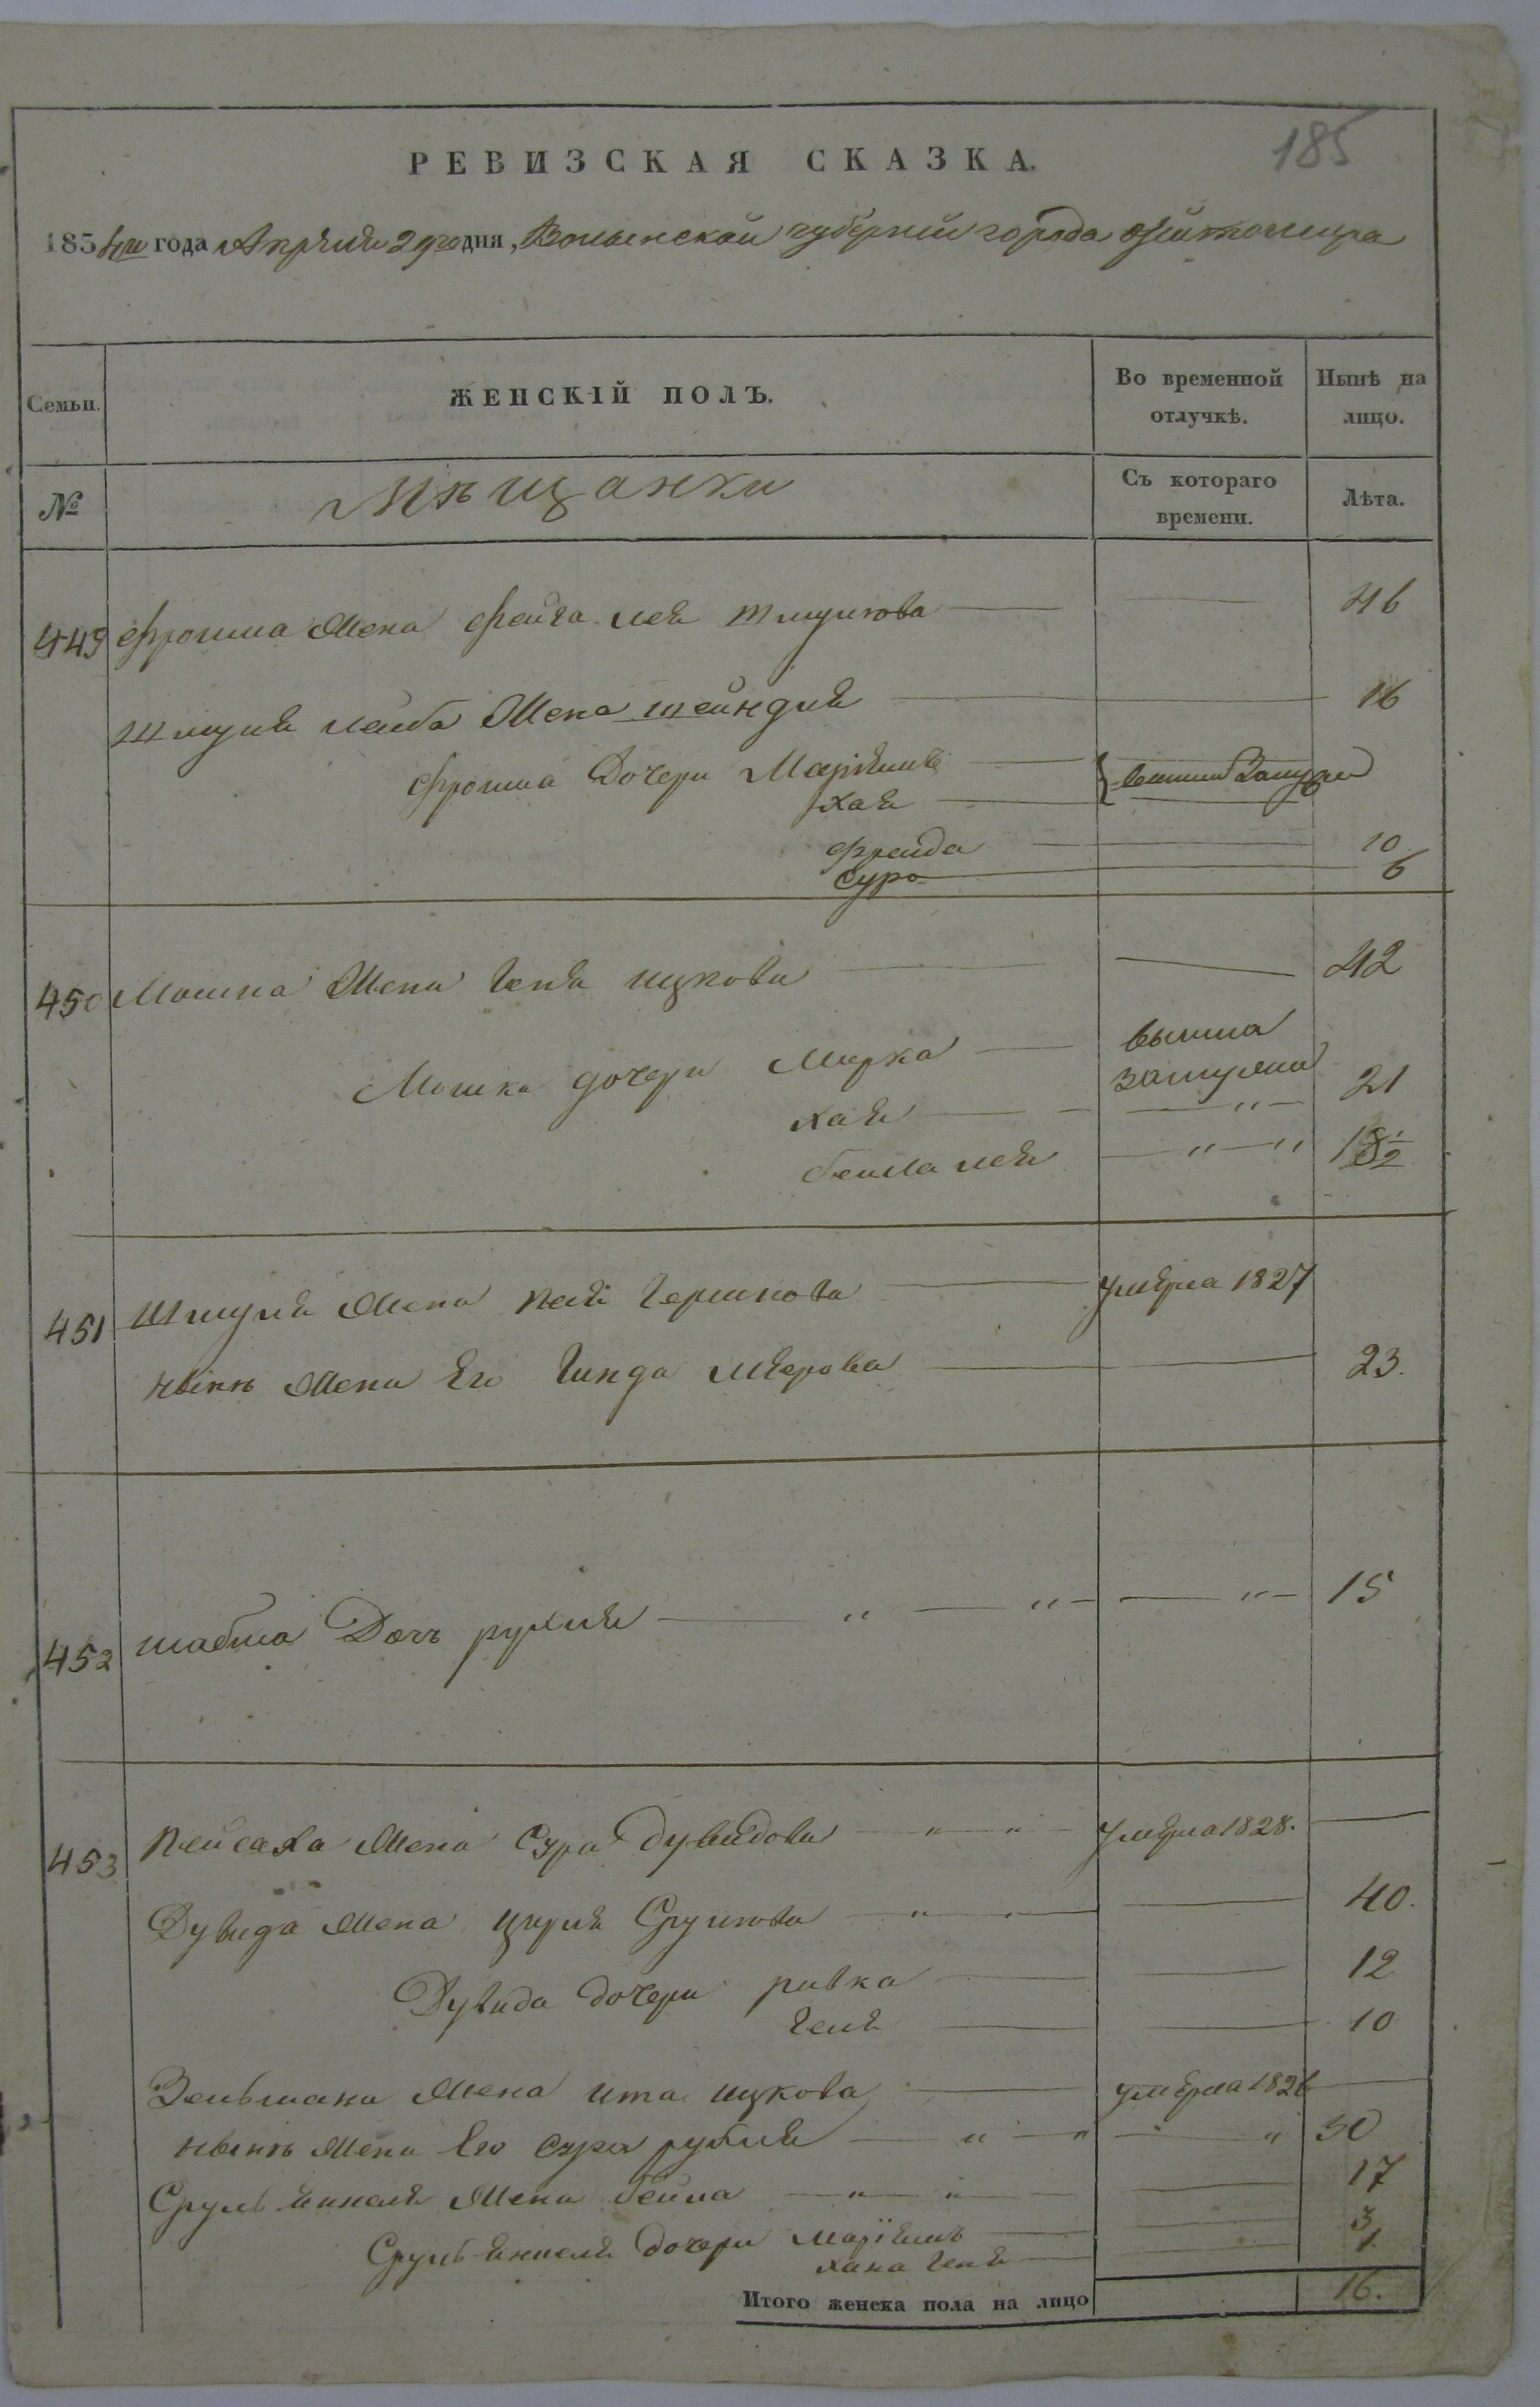 185
РЕВИЗСКАЯ СКАЗКА.
1854го года Апреля 29го дня, Волынской губерніи города Житомира
Семьи. ЖЕНСКІЙ ПОЛЪ. Во временной отлучкѣ. Нынѣ на лицо.
№ Мѣщанки Съ котораго времени. Лѣта.
449 Фроима Жена Фейга лея Шмулкова 46
Шмуля лейба Жена шейндля 16
Фроима Дочери Маріямъ вышли Замуж
хая
Фрейда 10
Сура 6
450 Мошка Жена Геня ицкова 42
Мошка дочери Мирка вышла замужъ
хая 21
бейла лея 18 1/2
451 Шмуля Жена Гершкова умерла 1827
Новая Жена Его Гинда Меерова 23.
452 шабса Дочь рухля 15
453 Пейсаха Жена Сура Дувидова умерла 1828.
Дувида Жена цирля Срулкова 40.
Дувида дочери ривка 12
геля 10
Зельмана Жена ита ицкова умерла 1826
Новая Жена Его сура рухля 30
Сруль Янкеля Жена бейла 17
Сруль Янкеля дочери маріямъ 3
хана геня 1
Итого женска пола на лицо 16.